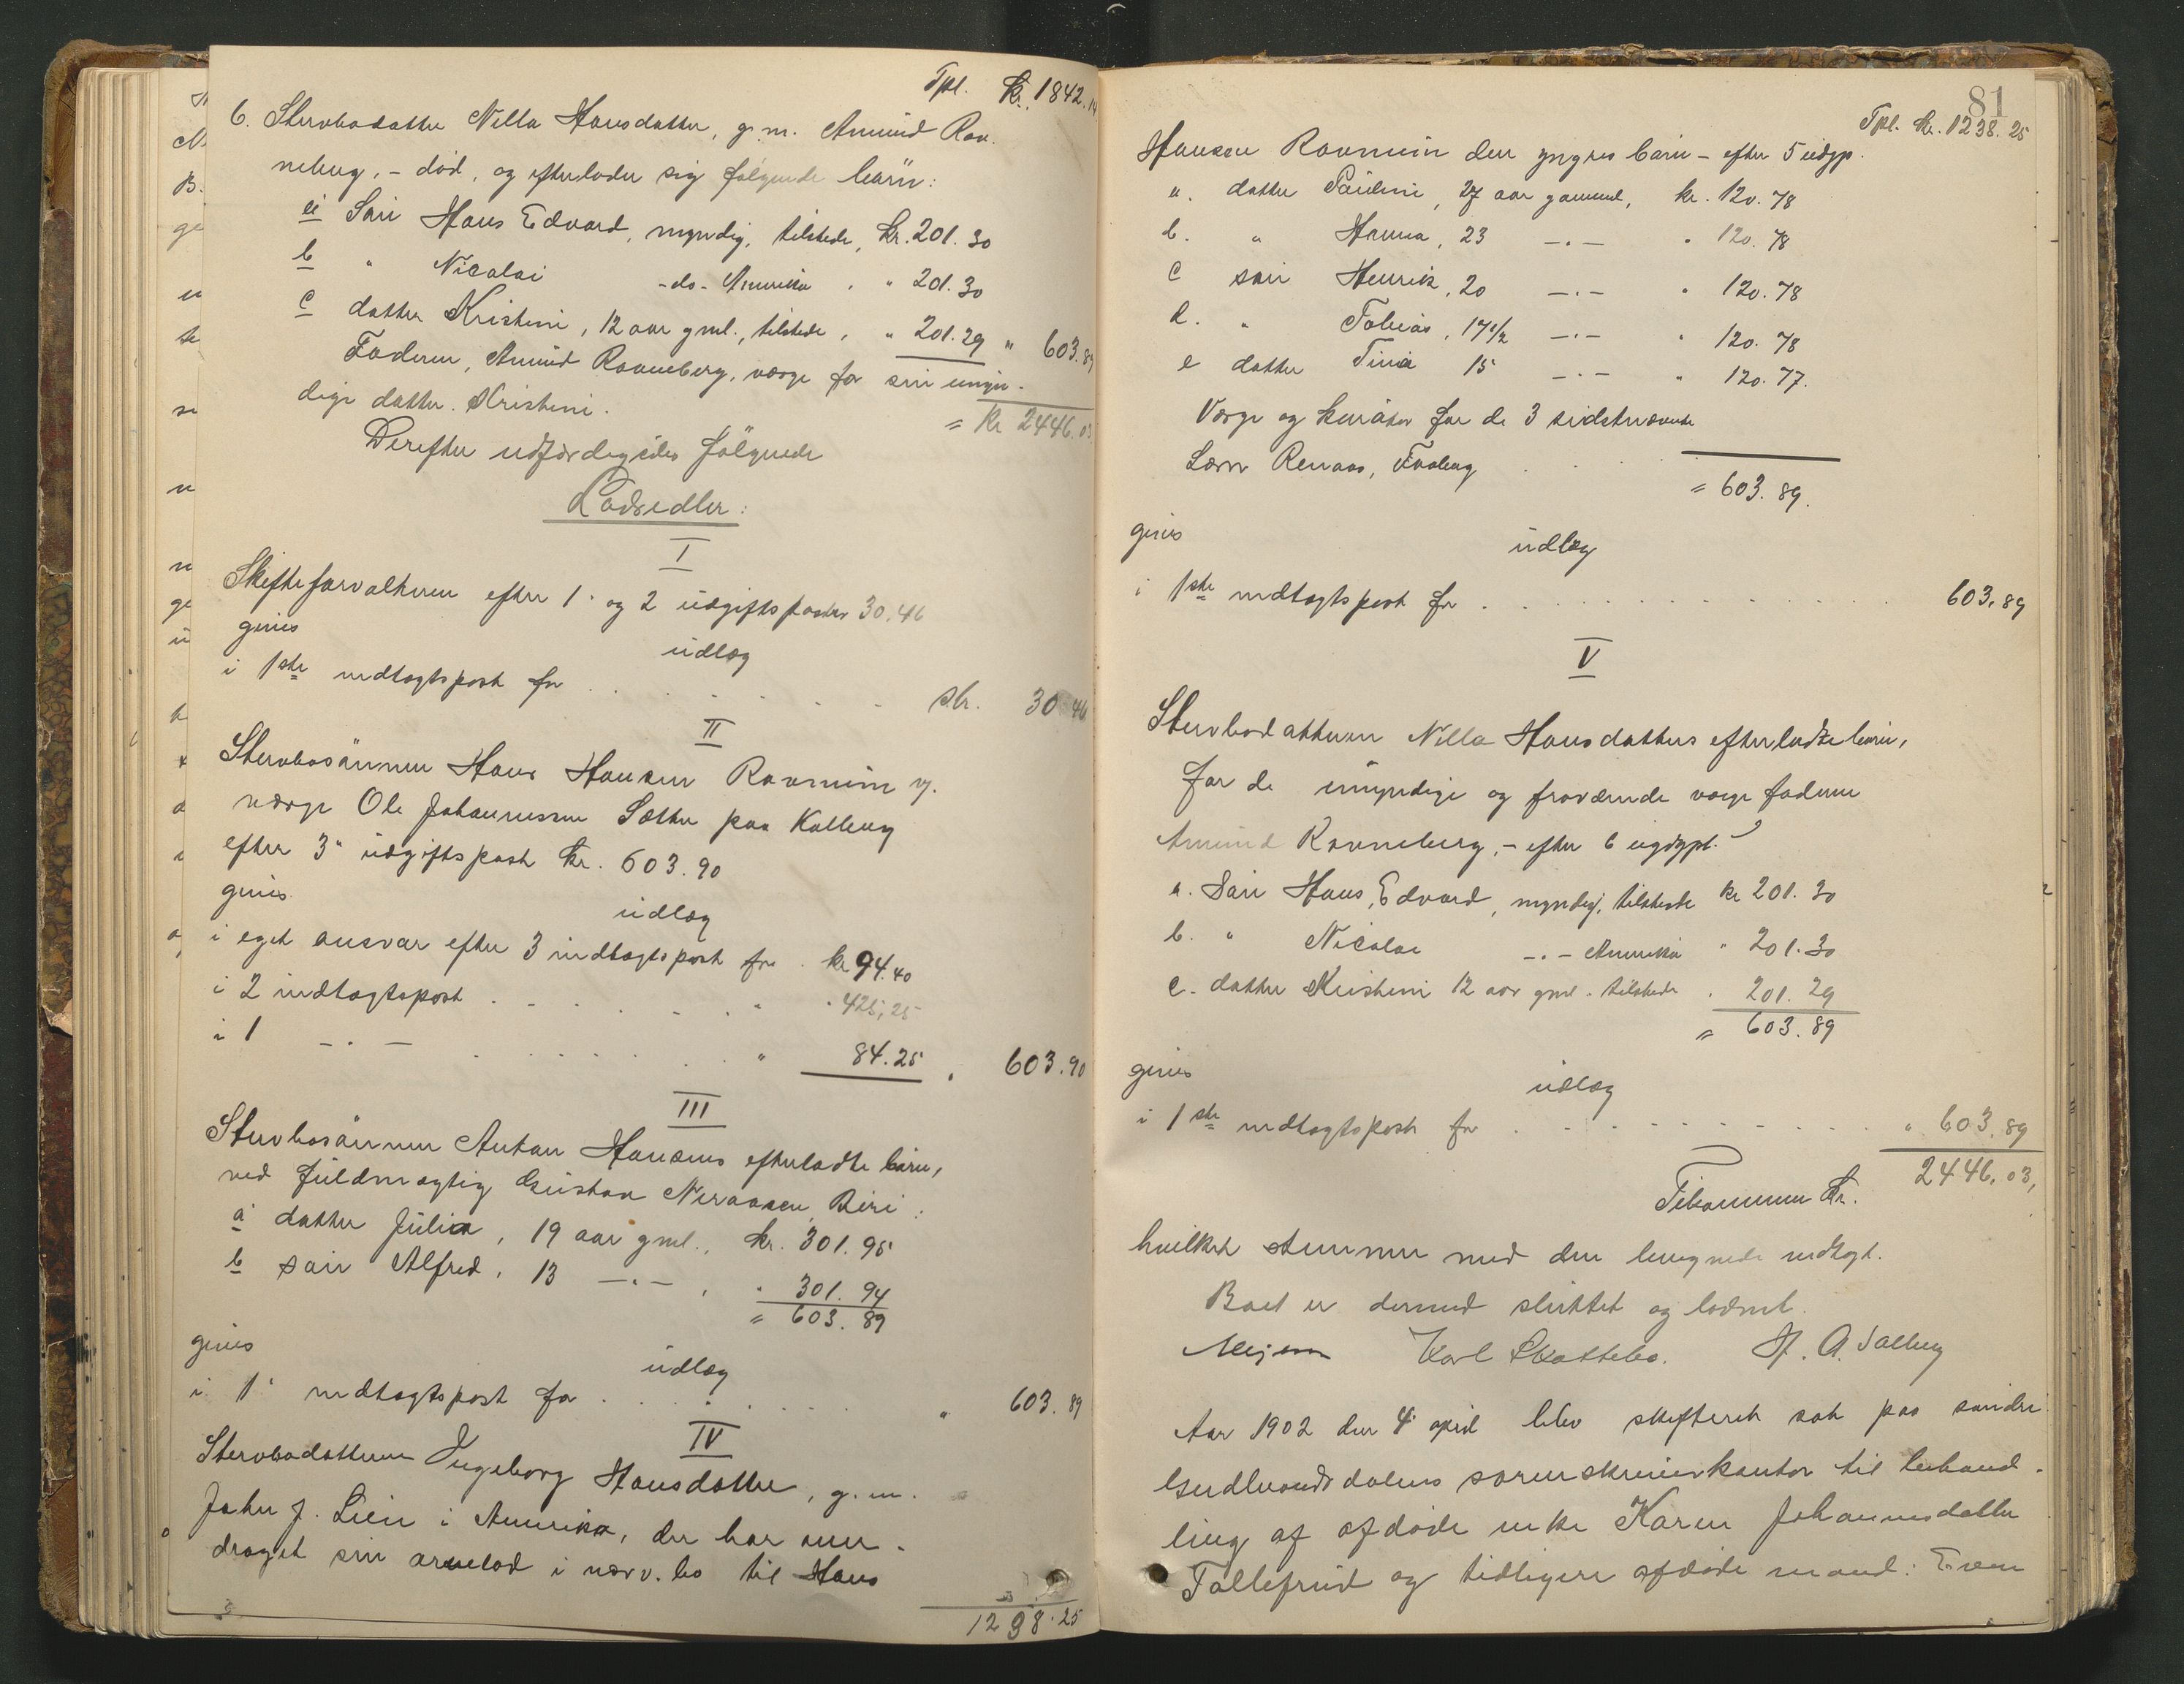 Tpl. Kr. 1842.14
6. Stervbodatter Nilla Hansdatter, g. m. Amund Rav-
neberg, - död, og efterlader sig følgende börn:
a Sön Hans Edvard, myndig, tilstede, Kr. 201.30
b " Nicolai -do- Amerika " 201.30
c datter Kristine, 12 aar gml., tilstede, " 201.29 " 603.89
Faderen, Amund Ravneberg, værge for sin umyn-
dige datter Kristine.
= Kr 2446.03
Derefter udfærdigedes følgende
Lodsedler:
I
Skifteforvalteren efter 1. og 2 udgiftsposter 30.46
gives
udlæg
i 1ste indtægtspost for . . . . . . kr. 30 46
II
Stervbosönnen Hans Hansen Ravnum y.
værge Ole Johannessen Sæther paa Kolberg
efter 3. udgiftspost Kr. 603.90
gives
udlæg
i eget ansvar efter 3 indtægtspost for . kr 94.40
i 2 indtægtspost . . . . . " " 425,25
i 1 -.- . . . . . . " 84.25 " 603.90
III
Stervbosönnen Anton Hansens efterladte börn,
ved fuldmægtig Gustav Neraasen, Biri:
a datter Julia, 19 aar gml., kr. 301.95
b sön Alfred, 13 -.- , " 301.94
= 603.89
gives
udlæg
i 1. indtægtspost for . . . . . . . " 603.89
IV
Stervbodatteren Ingeborg Hansdatter, g. m.
John J. Lien i Amerika, der har over-
draget sin arvelod i nærv. bo til Hans
1238.25
81
Tpl. Kr. 1238.25
Hansen Ravnum den yngres börn - efter 5 udgp.
a. datter Pauline, 27 aar gammel, kr. 120.78
b. " Hanna, 23 -.- " 120.78
c sön Henrik, 20 -.- " 120.78
d. " Tobias, 17 1/2 -.- " 120.78
e datter Tina 15 -.- " 120.77.
Værge og kurator for de 3 sidstnævnte
Lars Renaas, Faaberg . . .
= 603.89.
gives
udlæg
i 1ste indtægtspost for . . . . . . . . . . . . 603.89
V
Stervbodatteren Nilla Hansdatters efterladte börn,
for de umyndige og fraværende værge faderen
Amund Ravneberg, - efter 6 ugdgpt.
a. Sön Hans Edvard, myndig, tilstede kr 201.30
b. " Nicolai -.- Amerika " 201.30
c. datter Kristine 12 aar gml. tilstede . 201.29
= 603.89
gives
udlæg
i 1ste indtægtspost for . . . . . . . . . . " 603.89
Tilsammen Kr. 2446.03,
hvilket stemmer med den beregnede indtægt.
Boet er dermed sluttet og lodnet.
Karl Skattebo. H. A. Solberg
Aar 1902 den 4. april blev skifteret sat paa søndre
Gudbrandsdalens sorenskriverkontor til behand-
ling af afdöde enke Karen Johannesdatter
Tollefsrud og tidligere afdöde mand: Even